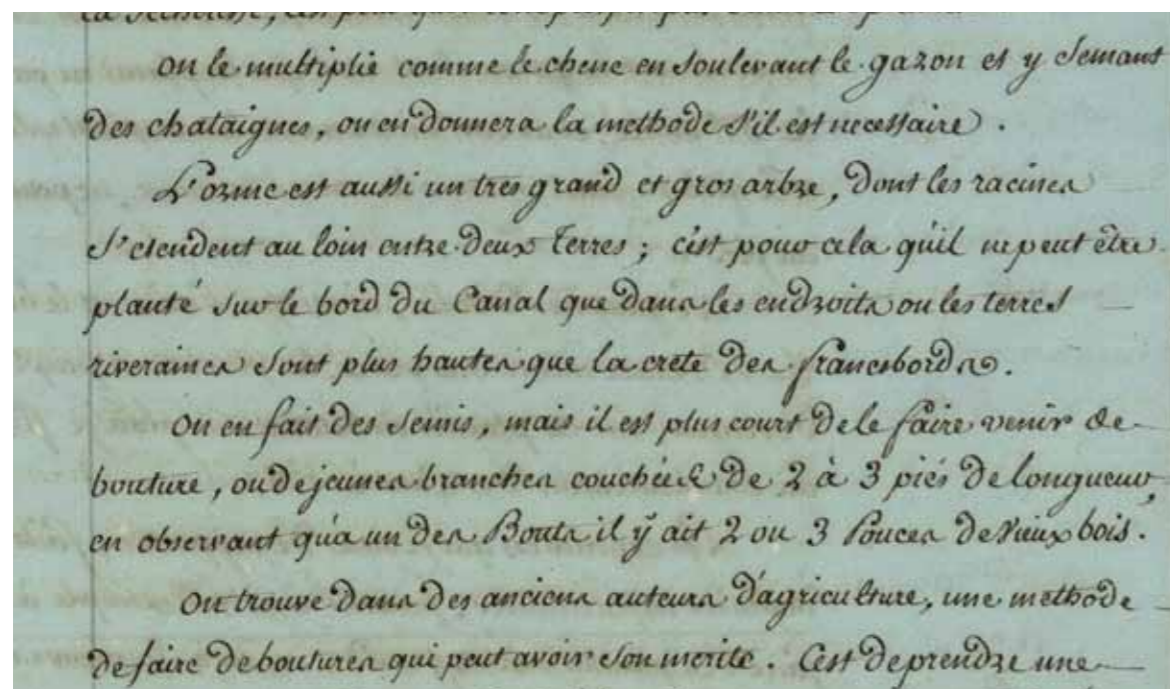 On le multiplie comme le chene en soulevant le gazon et y semant
des chataignes, on en donnera la methode s'il est necessaire.
L'orme est aussi un tres grand et gros arbre, dont les racines
s'etendent au loin entre deux terres ; c'est pour cela qu'il ne peut être
planté sur le bord du Canal que dans les endroits ou les terres
riveraines sont plus hautes que la crete des francsbords.
On en fait des semis, mais il est plus court de le faire venir de
bouture, ou de jeunes branches couchées de 2 à 3 piés de longueur,
en observant qu'a un des Bouts il ÿ ait 2 ou 3 Pouces de vieux bois.
On trouve dans des anciens auteurs d'agriculture, une methode
de faire de boutures qui peut avoir son merite. C'est de prendre une